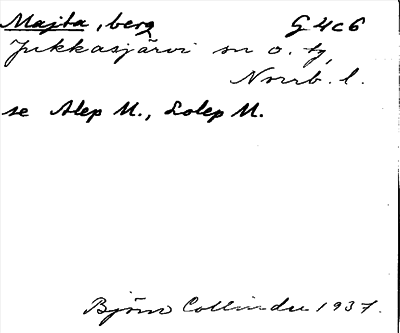 Majta, berg G 4c6
Jukkasjärvi sn o. tg,
Norrb. l.
se Alep M., Lolep M.
Björn Collinder 1937.